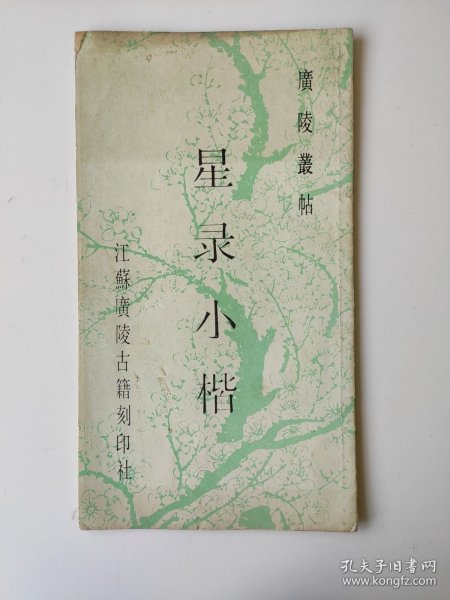 廣陵叢帖
星录小楷
江蘇廣陵古籍刻印社
孔夫子旧书网
www.kongfz.com